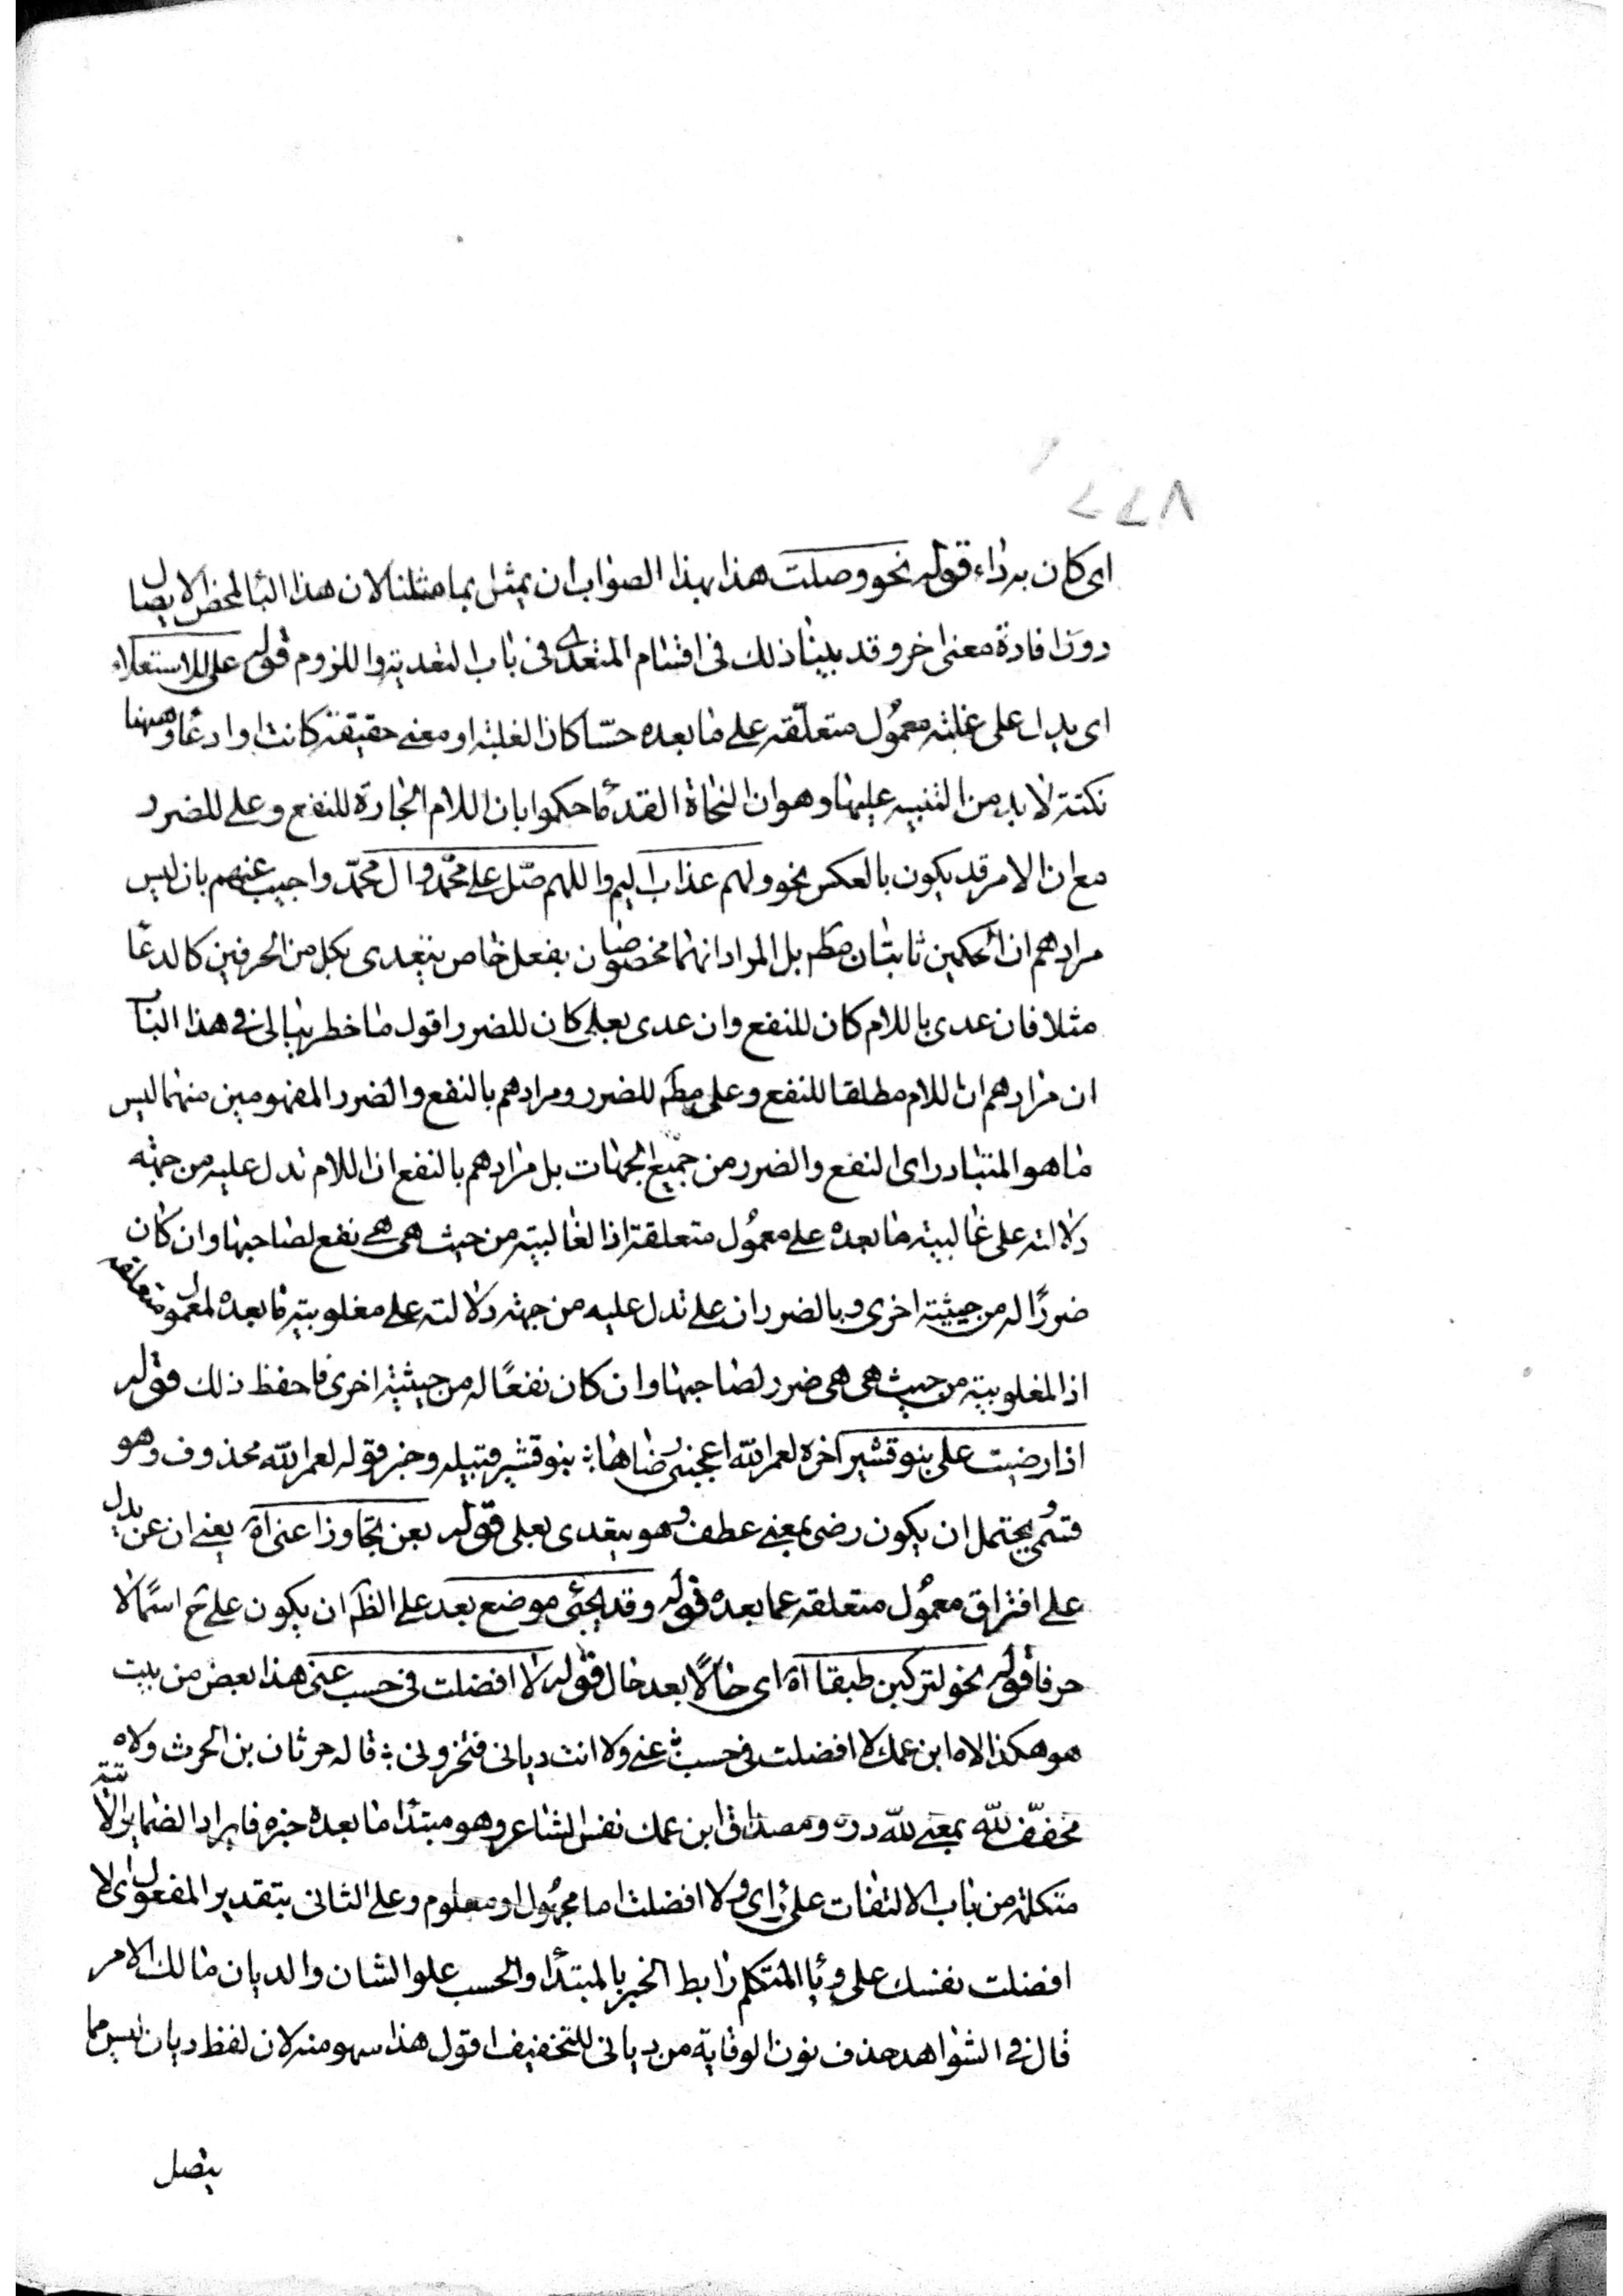 ٢٢٨
اى كان به داء قوله نحو وصلت هذا بهذا الصواب ان يمثل بما مثلنا لان هذا البا لمحض الايصال
دون افادة معنى اخر وقد بينا ذلك فى اقسام المتعدى فى باب التعدية واللزوم قوله على للاستعلاء
اى يدل على غلبة معمول متعلقه على ما بعده حسّا كان الغلبة او معنى حقيقة كانت او ادعا وههنا
نكتة لا بد من التنبيه عليها وهو ان النحاة القدما حكموا بان اللام الجارة للنفع وعلى للضرر
مع ان الامر قد يكون بالعكس نحو ولهم عذاب اليم واللهم صلّ على محمّد وال محمّد واجيب عنهم بان ليس
مرادهم ان الحكمين ثابتان مطه بل المراد انهما مخصوصان بفعل خاص يتعدى بكل من الحرفين كالدعا
مثلا فان عدى باللام كان للنفع وان عدى بعلى كان للضرر اقول ما خطر ببالى فى هذا الباب
ان مرادهم ان اللام مطلقا للنفع وعلى مطه للضرر ومرادهم بالنفع والضرر المفهومين منهما ليس
ما هو المتبادر اى النفع والضرر من جميع الجهات بل مرادهم بالنفع ان اللام تدل عليه من جهة
دلالته على غالبية ما بعده على معمول متعلقة اذ الغالبية من حيث هى هى نفع لصاحبها وان كان
ضررًا له من حيثية اخرى وبالضرر ان على تدل عليه من جهة دلالته على مغلوبية ما بعده لمعمول متعلقه
اذ المغلوبية من حيث هى هى ضرر لصاحبها وان كان نفعًا له من حيثية اخرى فاحفظ ذلك قوله
اذا رضيت على بنو قشير اخره لعمر الله اعجبنى رضاها ؛ بنو قشير قبيله وخبر قوله لعمر الله محذوف وهو
قسمى يحتمل ان يكون رضى بمعنى عطف وهو يتعدى بعلى قوله بعن تجاوزا عنى اه يعنى ان عن يدل
على افتراق معمول متعلقه عما بعده قوله وقد يجئى موضع بعد على الظه ان يكون على ح اسمًا لا
حرفا قوله نحو لتركبن طبقا اه اى حالًا بعد حال قوله لا افضلت فى حسب عنى هذا بعض من بيت
هو هكذا لاه ابن عمك لا افضلت فى حسب ؛ عنى ولا انت ديانى فتخزونى ؛ قاله حرثان بن الحرث ولاه
مخفّف للّه بمعنى للّه دره ومصداق ابن عمك نفس الشاعر وهو مبتدا ما بعده خبره فايراد الضماير الاتية
متكلمة من باب الالتفات على راى ولا افضلت اما مجهول او معلوم وعلى الثانى بتقدير المفعول اى لا
افضلت نفسك على ويا المتكلم رابط الخبر بالمبتدا والحسب علو الشان والديان مالك الامر
قال فى الشواهد حذف نون الوقاية من ديانى للتخفيف اقول هذا سهو منه لان لفظ ديان ليس مما
يتصل